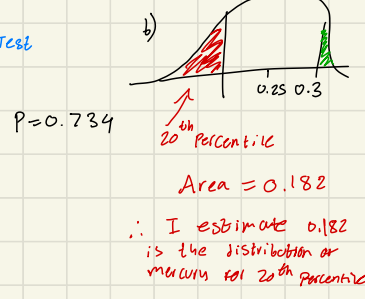 Test
b)
0.25 0.3
P=0.734
20th Percentile
Area = 0.182
∴ I estimate 0.182
is the distribution of
mercury for 20th percentile